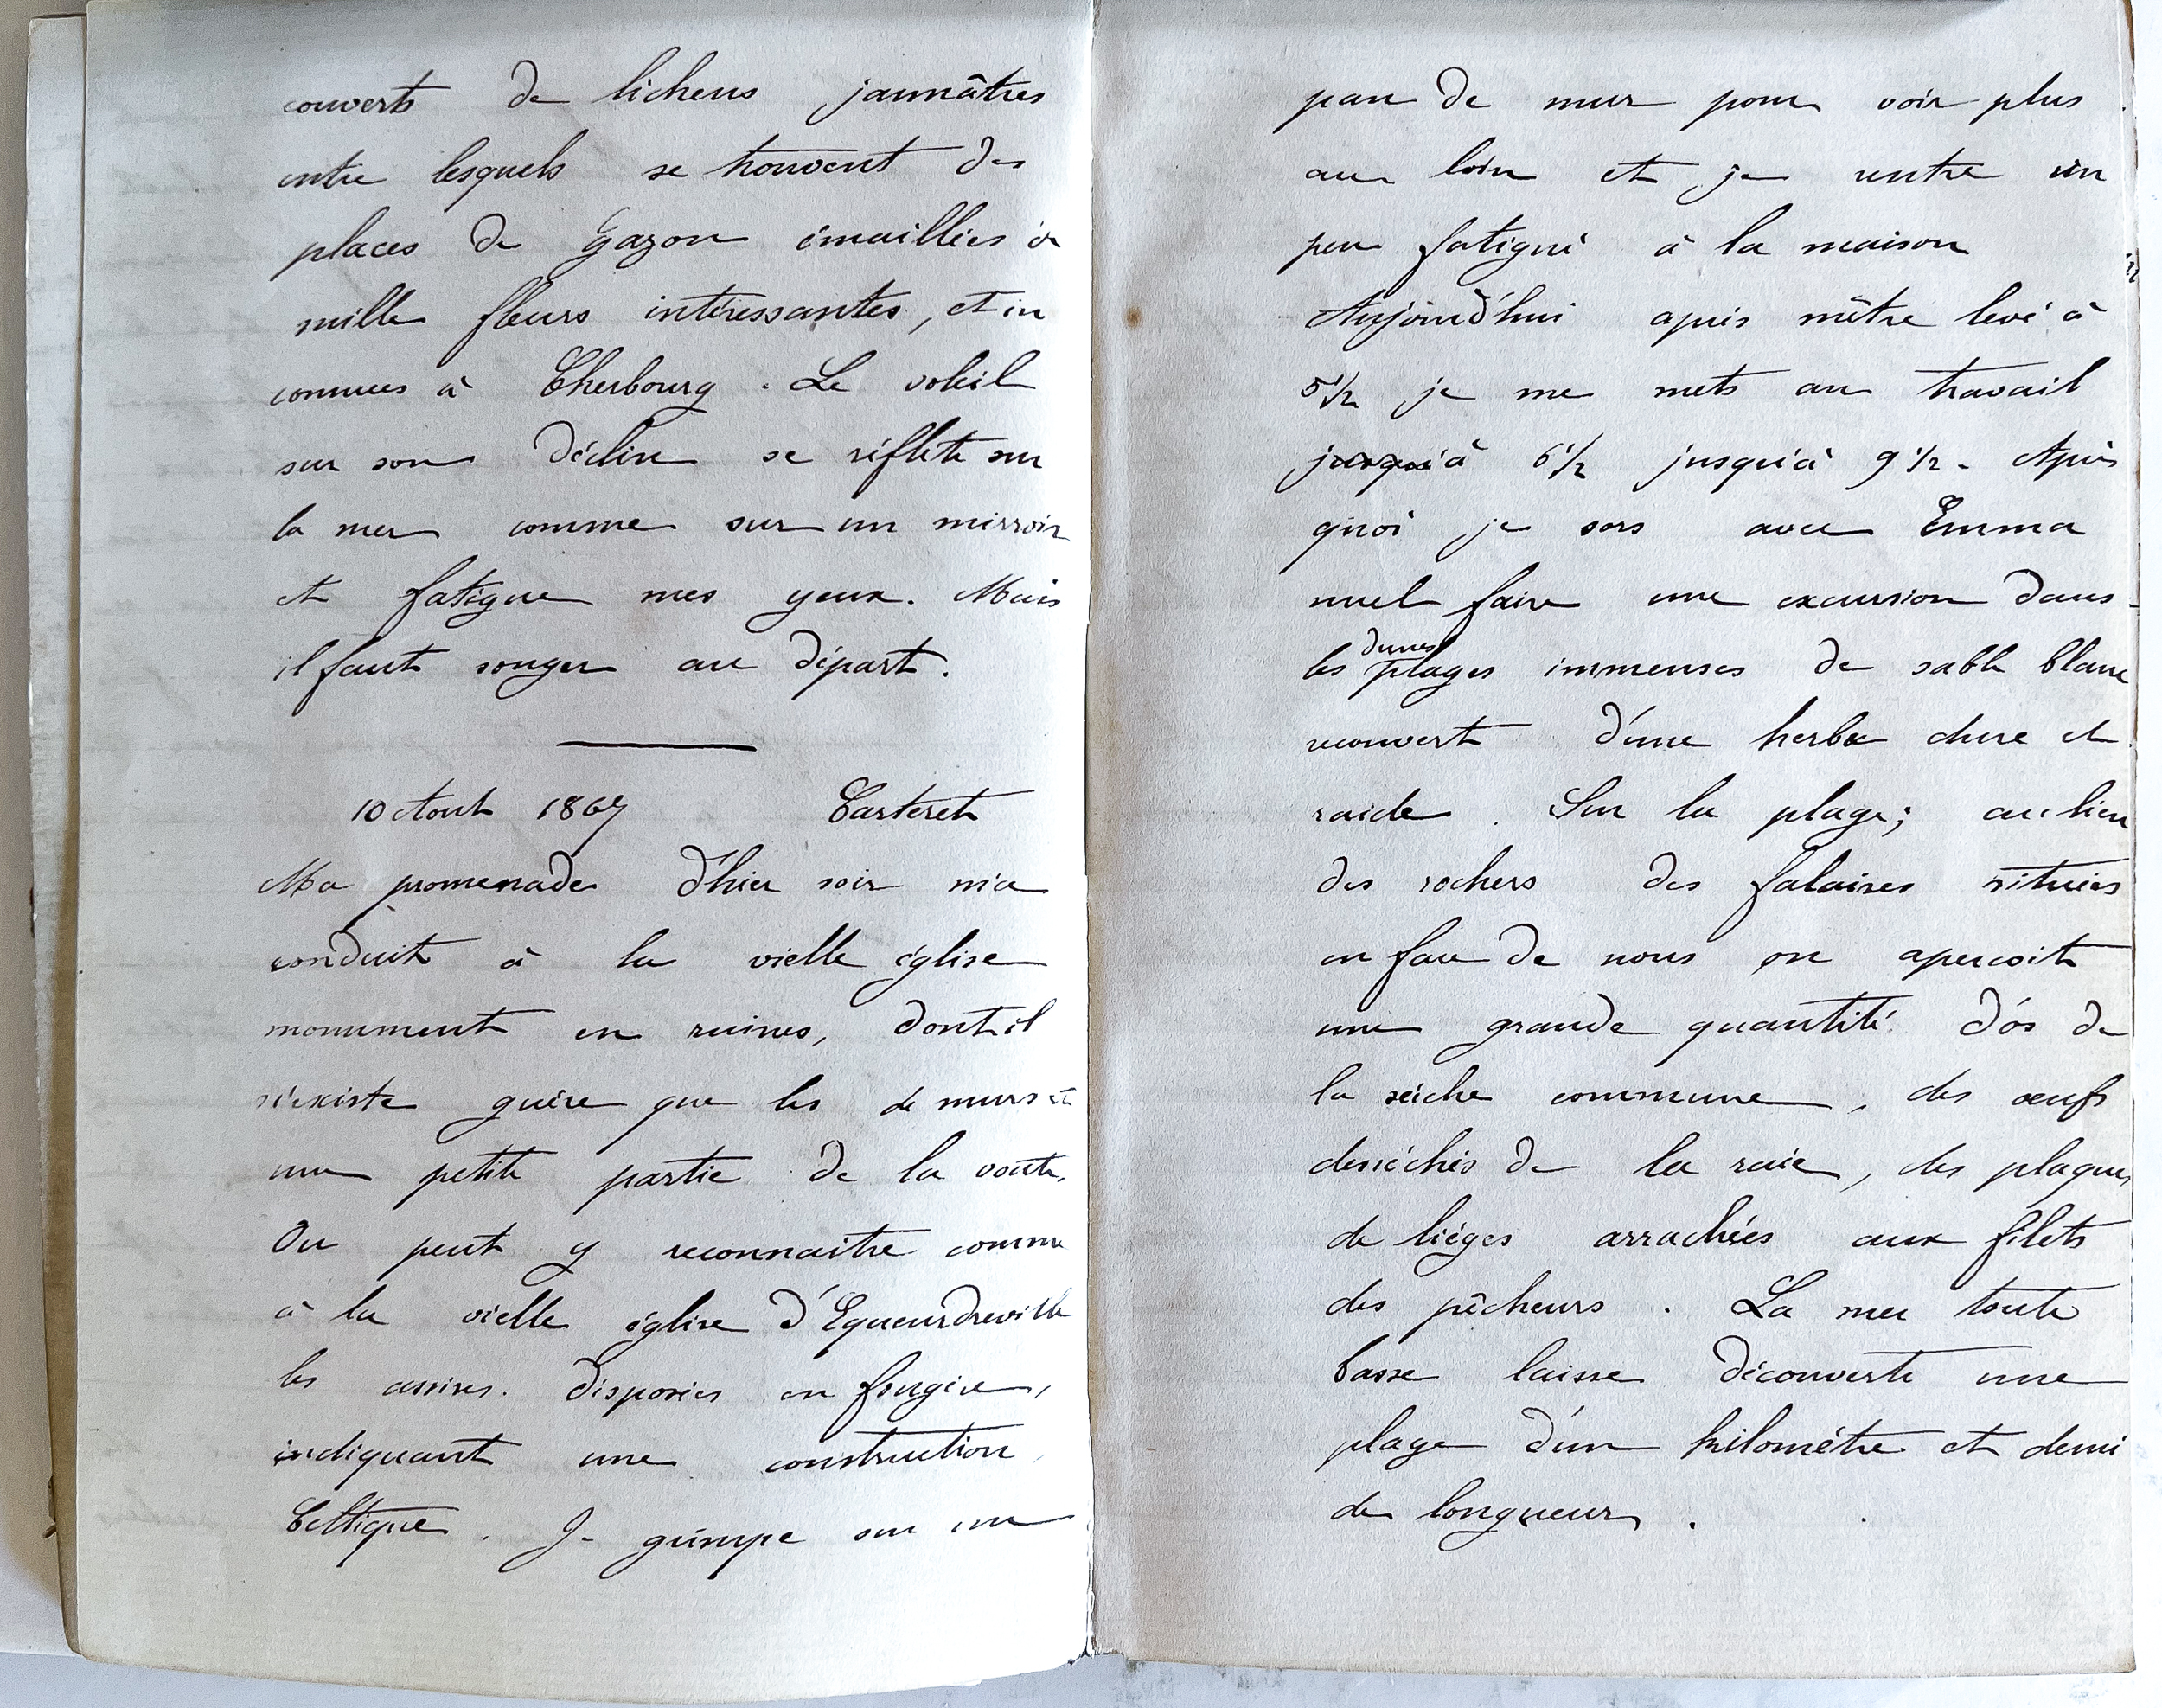 couverts de lichens jaunâtres
entre lesquels se trouvent des
places de Gazon émaillées de
mille fleurs intéressantes, et in
connues à Cherbourg. Le soleil
sur son déclin se réflète sur
la mer comme sur un mirroir
et fatigue mes yeux. Mais
il faut songer au départ.
10 Aout 1867 Carteret
Ma promenade d'hier soir m'a
conduit à la vielle église
monument en ruines, dont il
n'existe guère que les de murs et
une petite partie de la voute.
On peut y reconnaitre comme
à la vielle église d'Equeurdreville
les assises disposées en fougère,
indiquant une construction
Celtique. Je grimpe sur un
pan de mur pour voir plus
au loin et je rentre un
peu fatigué à la maison
Aujourd'hui après m'être levé à
5 1/2 je me mets au travail
jusqu'à 6 1/2 jusqu'à 9 1/2. Après
quoi je sors avec Emma
nuel faire une excursion dans
dunes
les plages immenses de sable blanc
recouvert d'une herbe dure et
raide. Sur la plage; au lieu
des rochers des falaises situées
en face de nous on apercoit
une grande quantité d'os de
la sèiche commune, des œufs
desséchés de la raie, des plaques
de lièges arrachées aux filets
des pêcheurs. La mer toute
basse laisse découverte une
plage d'un kilomètre et demi
de longueur.